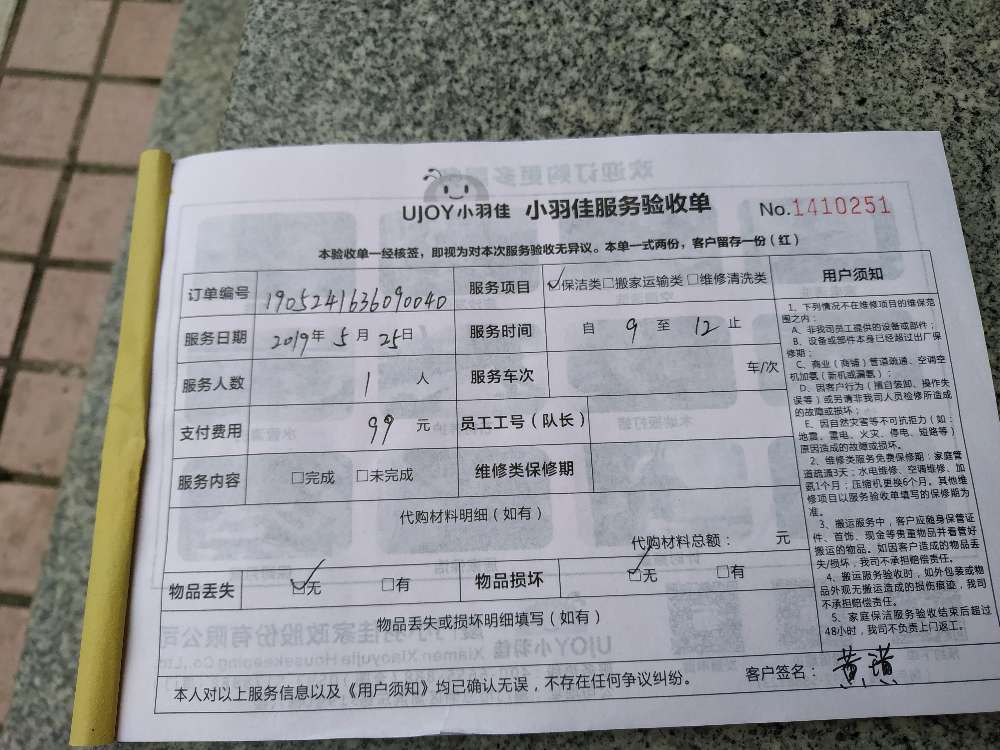 UJOY小羽佳 小羽佳服务验收单 No.1410251
本验收单一经核签，即视为对本次服务验收无异议。本单一式两份，客户留存一份（红）
订单编号 1905241636090040 服务项目 ☑保洁类□搬家运输类□维修清洗类
服务日期 2019年 5 月 25日 服务时间 自 9 至 12 止
服务人数 1 人 服务车次 车/次
支付费用 99 元 员工工号（队长）
服务内容 □完成 □未完成 维修类保修期
代购材料明细（如有）
代购材料总额： 元
物品丢失 ☑无 □有 物品损坏 ☑无 □有
物品丢失或损坏明细填写（如有）
本人对以上服务信息以及《用户须知》均已确认无误，不存在任何争议纠纷。 客户签名：黄
用户须知
1、下列情况不在维修项目的维保范
围之内：
A、非我司员工提供的设备或部件；
B、设备或部件本身已经超过出厂保
修期；
C、商业（商铺）管道疏通、空调空
机加氨（新机或漏氨）；
D、因客户行为（擅自装卸、操作失
误等）或另请非我司人员检修所造成
的故障或损坏；
E、因自然灾害等不可抗拒力（如：
地震、雷电、火灾、停电、短路等）
原因造成的故障或损坏。
2、维修类服务免费保修期：家庭管
道疏通3天；水电维修、空调维修、加
氨1个月；压缩机更换6个月。其他维
修项目以服务验收单填写的保修期为
准。
3、搬运服务中，客户应随身保管证
件、首饰、现金等贵重物品并看管好
搬运的物品。如因客户造成的物品丢
失/损坏，我司不承担赔偿责任。
4、搬运服务验收时，如外包装或物
品外观无搬运造成的损伤痕迹，我司
不承担赔偿责任。
5、家庭保洁服务验收结束后超过
48小时，我司不负责上门返工。